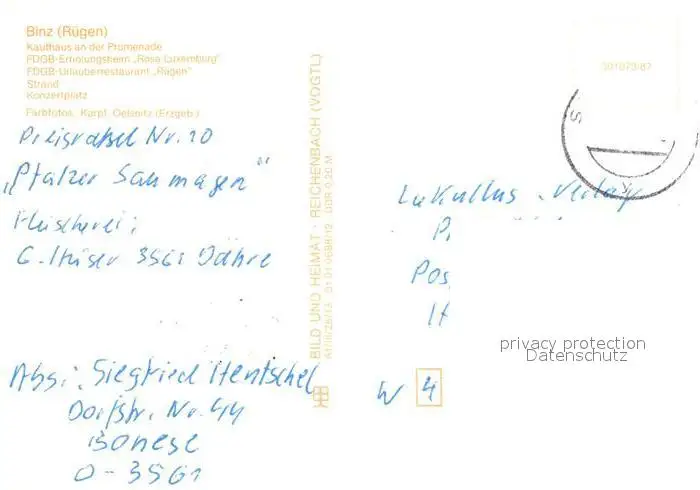 Binz (Rügen)
Kaufhaus an der Promenade
FDGB-Erholungsheim „Rosa Luxemburg"
FDGB-Urlauberrestaurant „Rügen"
Strand
Konzertplatz
Farbfotos: Karpf, Oelsnitz (Erzgeb.)
Preisrätsel Nr. 10
„Pfälzer Saumagen"
Fleischerei:
G. Hüser 3561 Dähre
Abs.: Siegfried Hentschel
Dorfstr. Nr. 44
Bonese
O-3561
BILD UND HEIMAT · REICHENBACH (VOGTL)
A1/III/26/13 01 01 0688/12 DDR 0,20 M
301073/87
S
Lukullus Verlag
P
Pos
H
W 4
privacy protection
Datenschutz